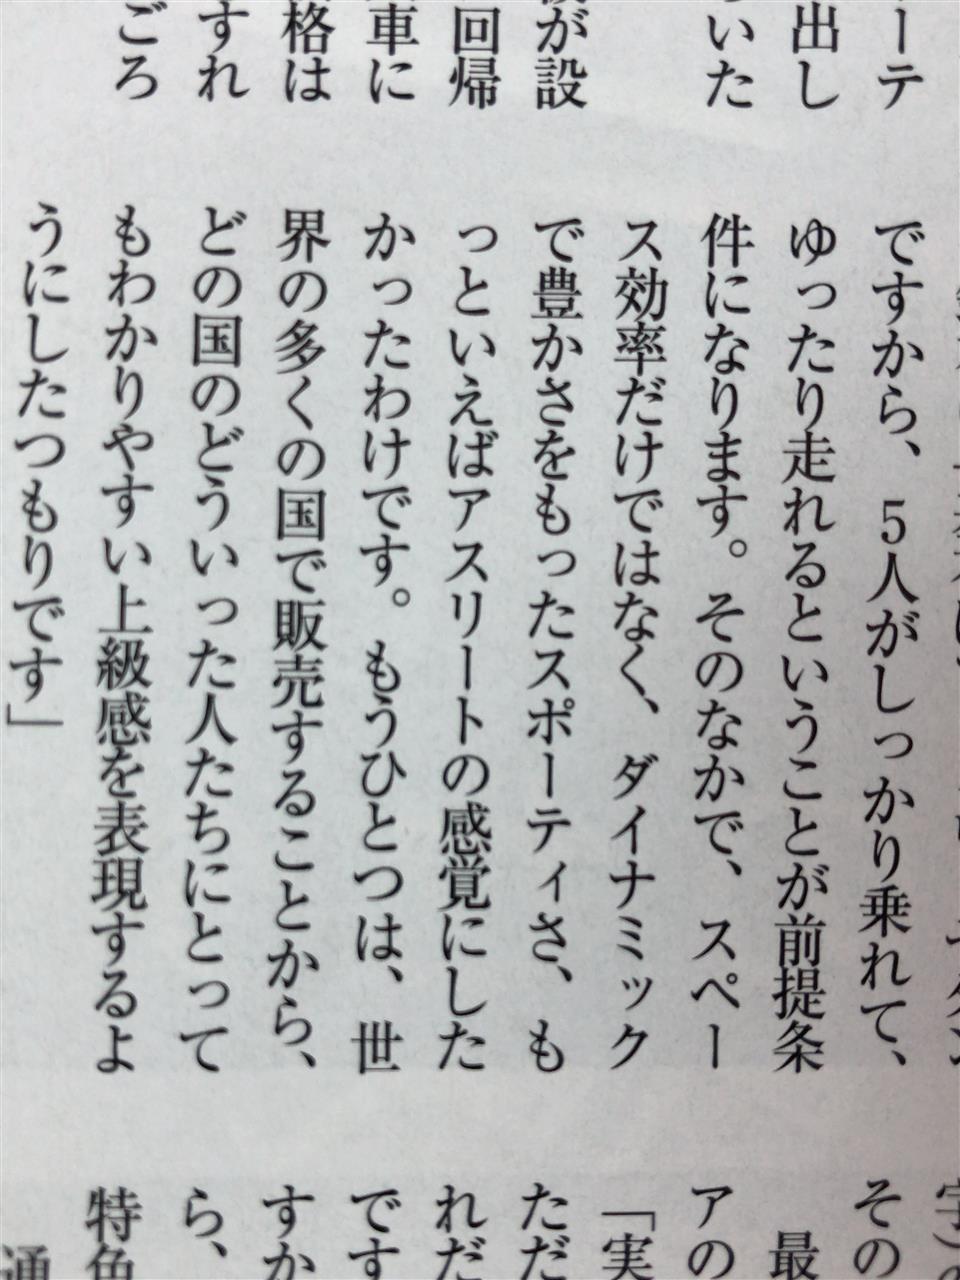 ーテ
出し
いた
が設
回帰
車に
格は
すれ
ごろ
ですから、5人がしっかり乗れて、
ゆったり走れるということが前提条
件になります。そのなかで、スペー
ス効率だけではなく、ダイナミック
で豊かさをもったスポーティさ、も
っといえばアスリートの感覚にした
かったわけです。もうひとつは、世
界の多くの国で販売することから、
どの国のどういった人たちにとって
もわかりやすい上級感を表現するよ
うにしたつもりです」
その
最
アの
「実
ただ
れだ
です
すか
ら、
特色
通